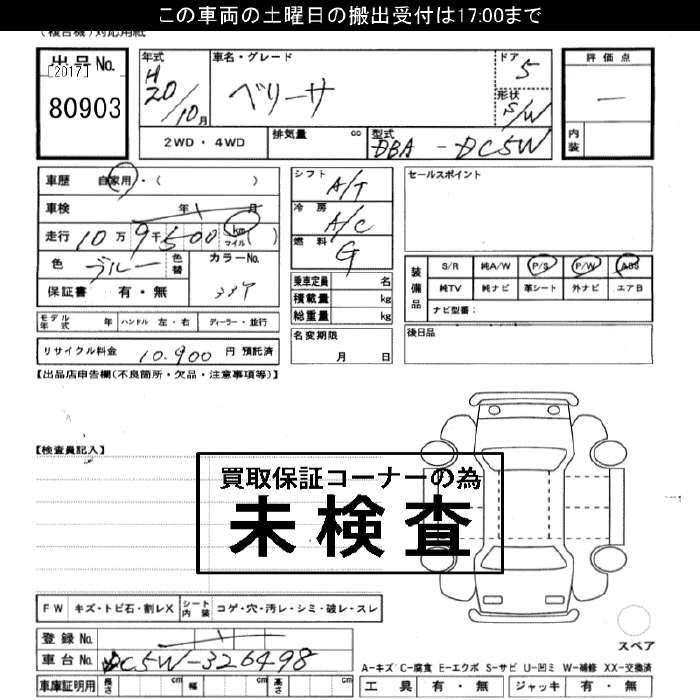 この車両の土曜日の搬出受付は17:00まで
(複合機)対応用紙
出品No.
[2017]
80903
年式
H20/10月
車名・グレード
ベリーサ
ドア 5
形状 S/W
評価点
—
内装
2WD・4WD
排気量 cc
型式 DBA-DC5W
車歴 自家用・( )
車検 年 月
走行 10万9千500 km マイル( )
色 ブルー 色替
カラーNo.
保証書 有・無
モデル年式 年 ハンドル 左・右 ディーラー・並行
リサイクル料金 10,900円 預託済
シフト A/T
冷房 A/C
燃料 G
乗車定員 名
積載量 kg
総重量 kg
名変期限
月 日
セールスポイント
装備品
S/R 純A/W P/S P/W ABS
純TV 純ナビ 革シート 外ナビ エアB
ナビ型番:
後日品
【出品店申告欄(不良箇所・欠品・注意事項等)】
【検査員記入】
買取保証コーナーの為
未検査
FW キズ・トビ石・割レX シート内装 コゲ・穴・汚レ・シミ・破レ・スレ
登録No.
車台No. DC5W-326498
車庫証明用 長さ cm 幅 cm 高さ cm
スペア
A-キズ C-腐食 E-エクボ S-サビ U-凹ミ W-補修 XX-交換済
工具 有・無 ジャッキ 有・無